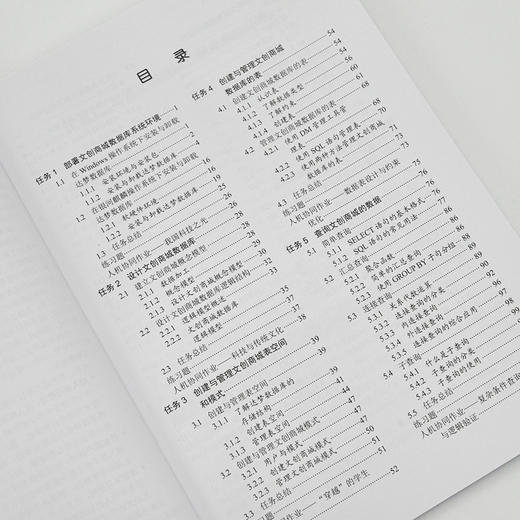 目 录
任务 1 部署文创商城数据库系统环境 1
1.1 在 Windows 操作系统下安装与卸载
达梦数据库 2
1.1.1 安装环境与安装包
1.1.2 安装与卸载达梦数据库 4
1.2 在银河麒麟操作系统下安装与卸载
达梦数据库 16
1.2.1 软硬件环境 16
1.2.2 安装与卸载达梦数据库
1.3 任务总结
练习题
人机协同作业——我国科技之光 28
任务 2 设计文创商城数据库 28
2.1 建立文创商城概念模型
2.1.1 数据加工
2.1.2 概念模型
2.1.3 设计文创商城概念模型
2.2 设计文创商城数据库逻辑结构 33
2.2.1 逻辑模型概述 35
2.2.2 文创商城数据库
逻辑模型 35
2.3 任务总结 37
练习题
人机协同作业——科技与传统文化
任务 3 创建与管理文创商城表空间
和模式 39
3.1 创建与管理表空间 39
3.1.1 了解达梦数据库的
存储结构
3.1.2 创建表空间 41
3.1.3 管理表空间 44
3.2 创建与管理文创商城模式 47
3.2.1 用户与模式 47
3.2.2 创建文创商城模式
3.2.3 管理文创商城模式 50
3.3 任务总结 51
练习题
人机协同作业——“穿越”的学生 52
任务 4 创建与管理文创商城
数据库的表 54
4.1 创建文创商城数据库的表 54
4.1.1 认识表
4.1.2 了解数据类型 56
4.1.3 了解约束 60
4.1.4 创建表 61
4.2 管理文创商城数据库的表 68
4.2.1 使用 DM 管理工具管
理表 68
4.2.2 使用 SQL 语句管理表
4.2.3 使用两种方法管理文创商城
数据库的表
4.3 任务总结
练习题
人机协同作业——数据表设计与约束
优化 76
任务 5 查询文创商城的数据
5.1 简单查询
5.1.1 SELECT 语句的基本格式
5.1.2 SQL 语句的常见用法
5.2 汇总查询 86
5.2.1 聚合函数
5.2.2 简单的汇总查询 88
5.2.3 使用 GROUP BY 子句分组
5.3 连接查询
5.3.1 关系代数运算 90
5.3.2 连接查询的分类 92
5.3.3 内连接查询
5.3.4 外连接查询
5.3.5 连接查询的综合应用 98
5.4 子查询 99
5.4.1 什么是子查询
5.4.2 子查询的分类
5.4.3 子查询的使用
5.5 任务总结
练习题
人机协同作业——复杂条件查询
与逻辑验证